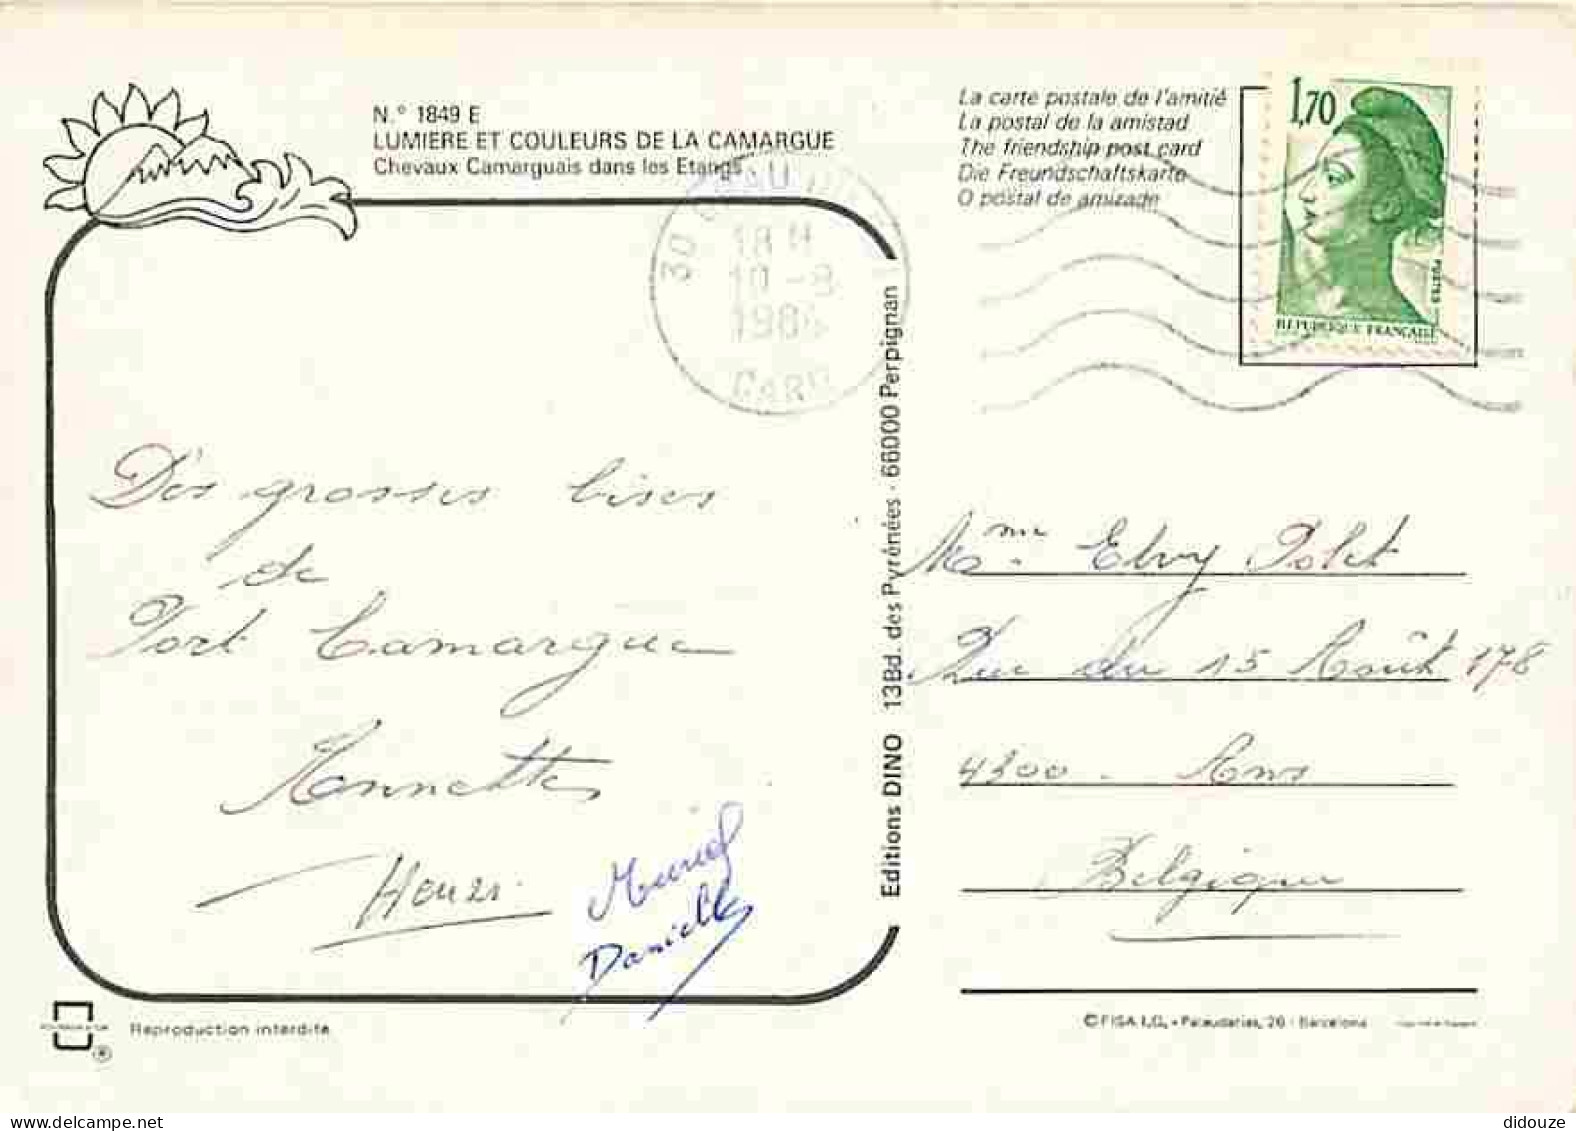 N.° 1849 E
LUMIERE ET COULEURS DE LA CAMARGUE
Chevaux Camarguais dans les Etangs
La carte postale de l'amitié
La postal de la amistad
The friendship post card
Die Freundschaftskarte
O postal de amizade
1,70
POSTES
REPUBLIQUE FRANÇAISE
30 GRAU DU
18 H
10 - 8
1986
GARD
Des grosses bises
de
Port Camargue
Annette
Henri
Muriel
Danielle
Editions DINO 13Bd. des Pyrénées - 66000 Perpignan
Mme Elvy Polet
Rue du 15 Août 178
4300 - Ans
Belgique
Reproduction interdite
®
© FISA I.G. - Palaudarias, 26 - Barcelona
didouze